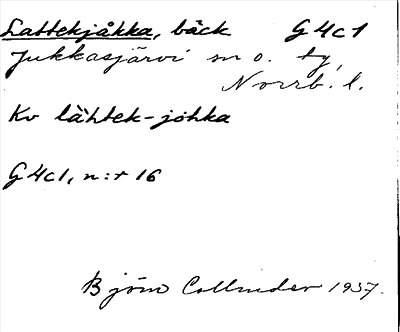 Lattekjåkka, bäck G4c1
Jukkasjärvi sn o. tg,
Norrb. l.
Kv lähtek-johka
G4c1, n:r 16
Björn Collinder 1937.